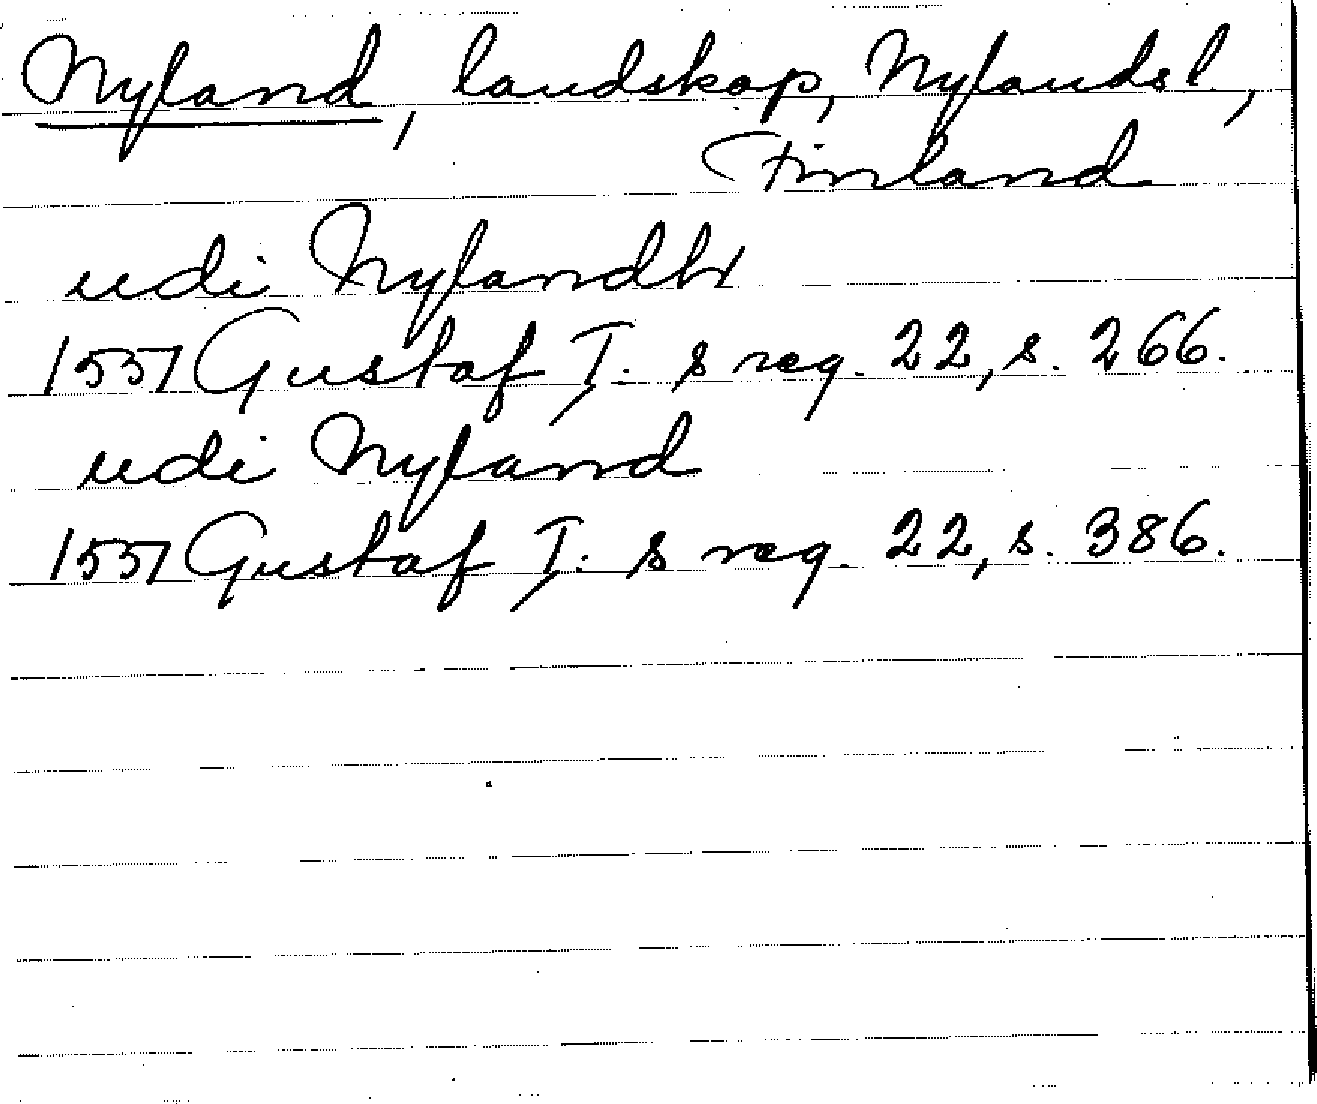 Nyland, landskap, Nylands l.,
Finland
udi Nylandh
1557 Gustaf I:s reg. 22, s. 266.
udi Nyland
1557 Gustaf I:s reg. 22, s. 386.